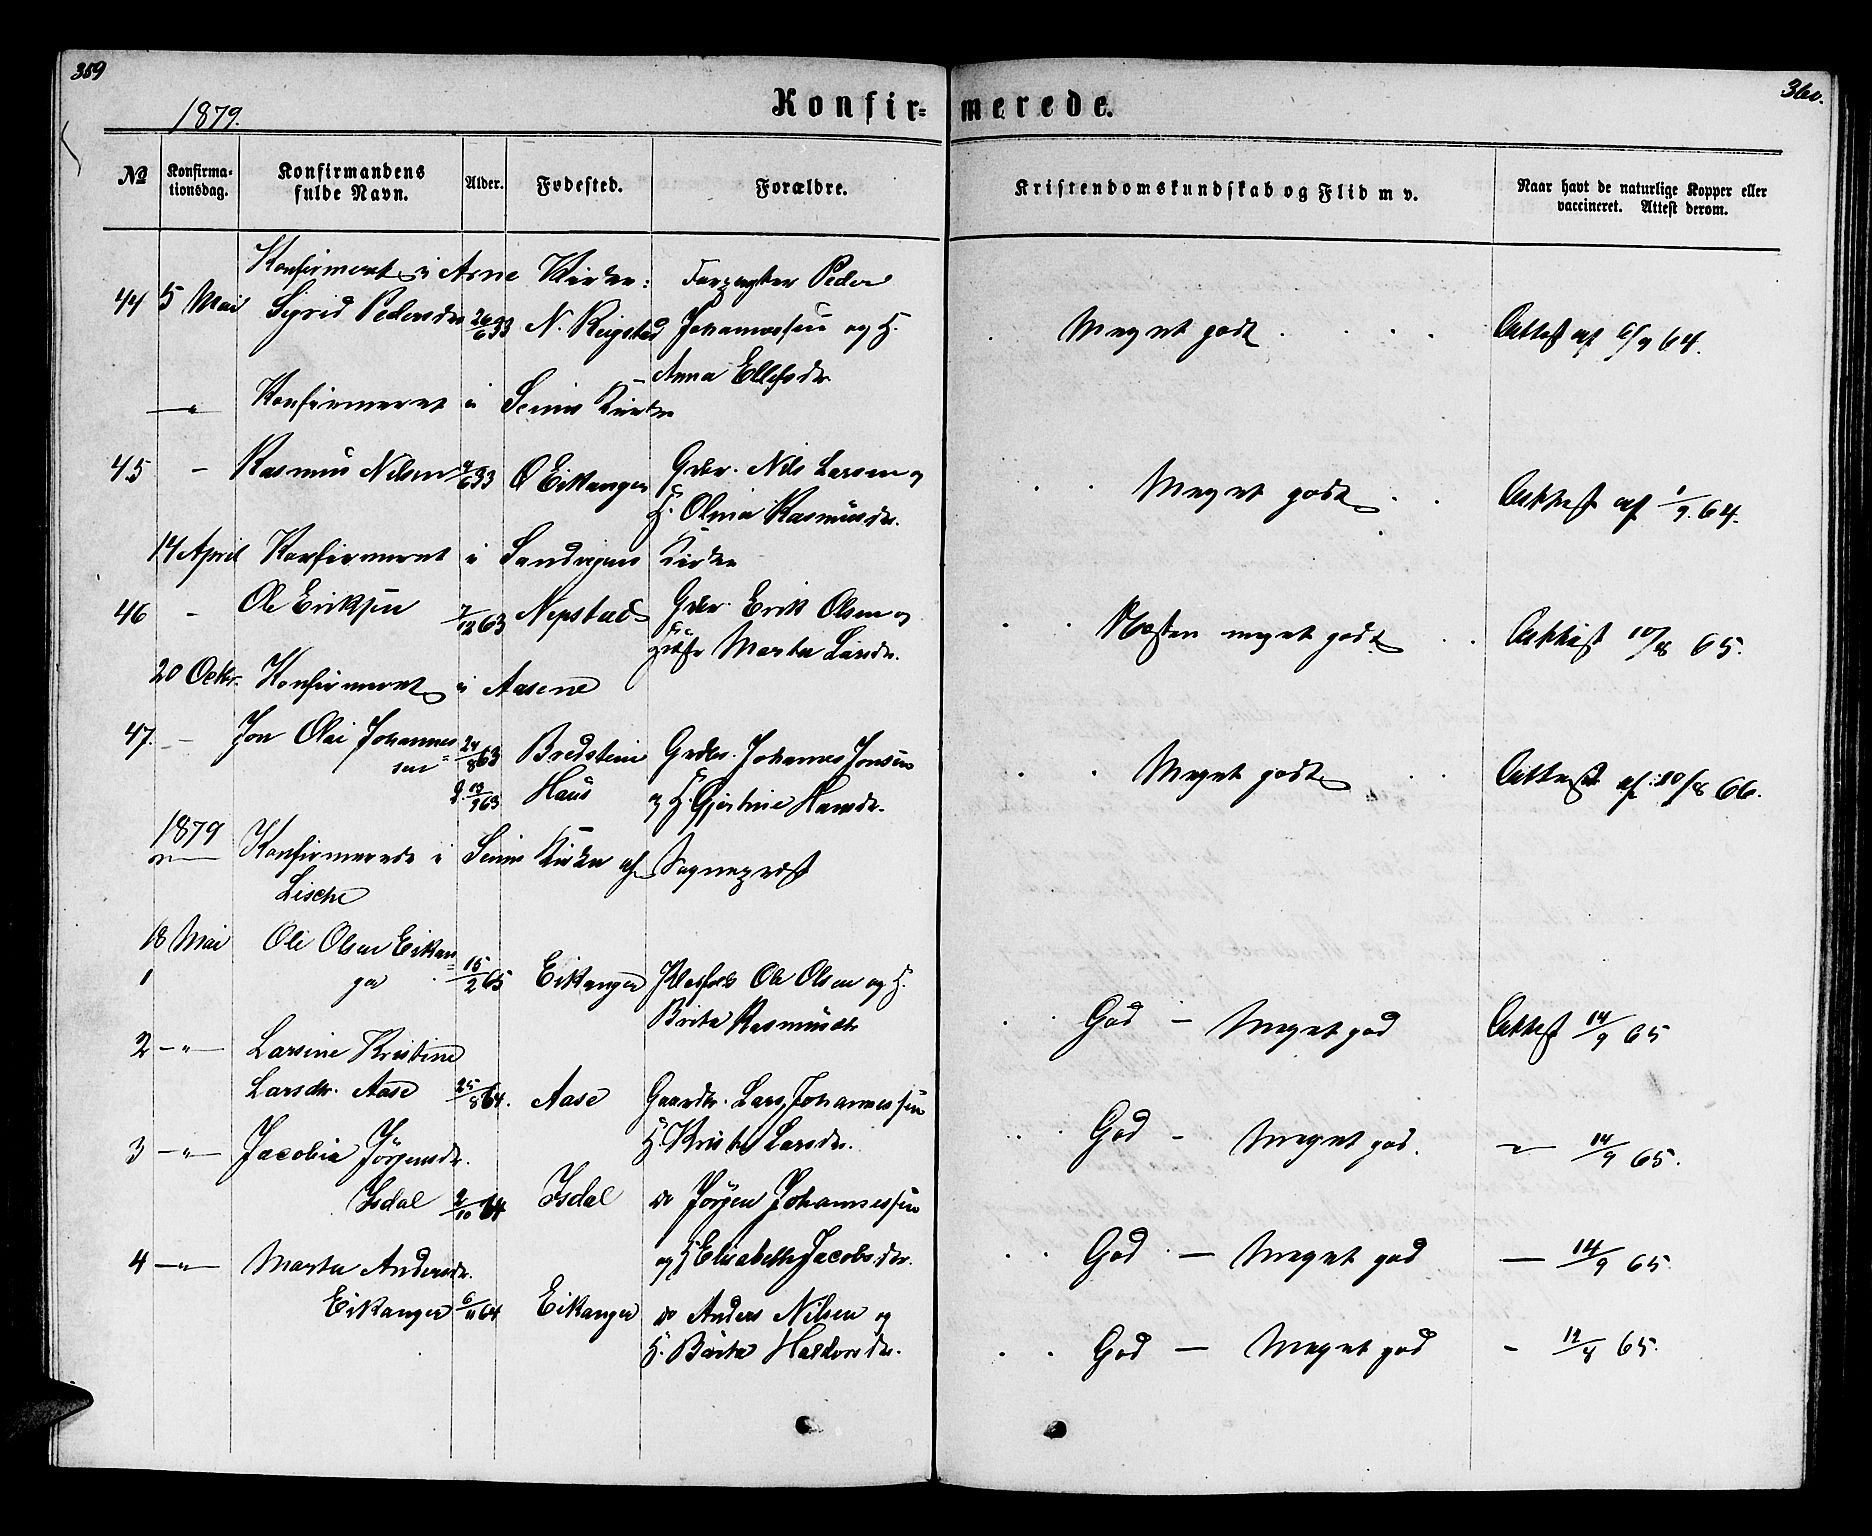 359
360.
1879.
Konfir= merede.
No
Konfirma-
tionsdag.
Konfirmandens
fulde Navn.
Alder.
Fødested.
Forældre.
Kristendomskundskab og Flid m v.
Naar havt de naturlige Kopper eller
vaccineret. Attest derom.
Konfirmeret i Arne Kirke: Forpagter Peder
44 5 Mai Sigrid Pedersdr 26/6 N. Reigstad Johannessen og H.
Meget godt Attest af 6/9 64.
Anna Ellefsdr.
Konfirmeret i Seims Kirke
45 - Rasmus Nilsen Ø Eikanger Gdbr. Nils Larsen og
Meget godt Attest af 1/9 64.
H. Olina Rasmusdr.
14 April Konfirmeret i Kirke
46 - Ole Eriksen 7/12 63 Nepstad Gdbr. Erik Olsen og
Næsten meget godt Attest 10/8 65.
Marta Larsdr.
20 Octbr. Konfirmeret i Aasene
47. - Jon Olai Johannes= 24/8 63 Bredstein Gdbr. Johannes Jonsen
sen
Meget godt Attest af 20/8 66.
63 Haus og H. Gjertine Hansdr.
1879
Konfirmerede i Seims Kirke af Sogneprest
Lische
18 Mai Ole Olsen Eikan=
1 ger 15/2 65 Eikanger Ole Olsen og H.
God - Meget god Attest 14/9 65
Brita Rasmusdr
2 -"- Larsine Kristine
Larsdr. Aase 25/8 64. Aase Gaardbr. Lars Johannessen
God - Meget god. " 14/9 65.
H. Larsdr.
3 -"- Jacobia Jørgensdr.
Isdal 2/10 64 Isdal do Jørgen Johannessen
God - Meget god - 14/9 65
og H Elisabeth Jacobsdr.
4 -"- Marta Andersdr.
Eikanger 6/11 64 Eikanger do Anders Nilsen og
God - Meget god - 65.
H. Brita Haldorsdr.